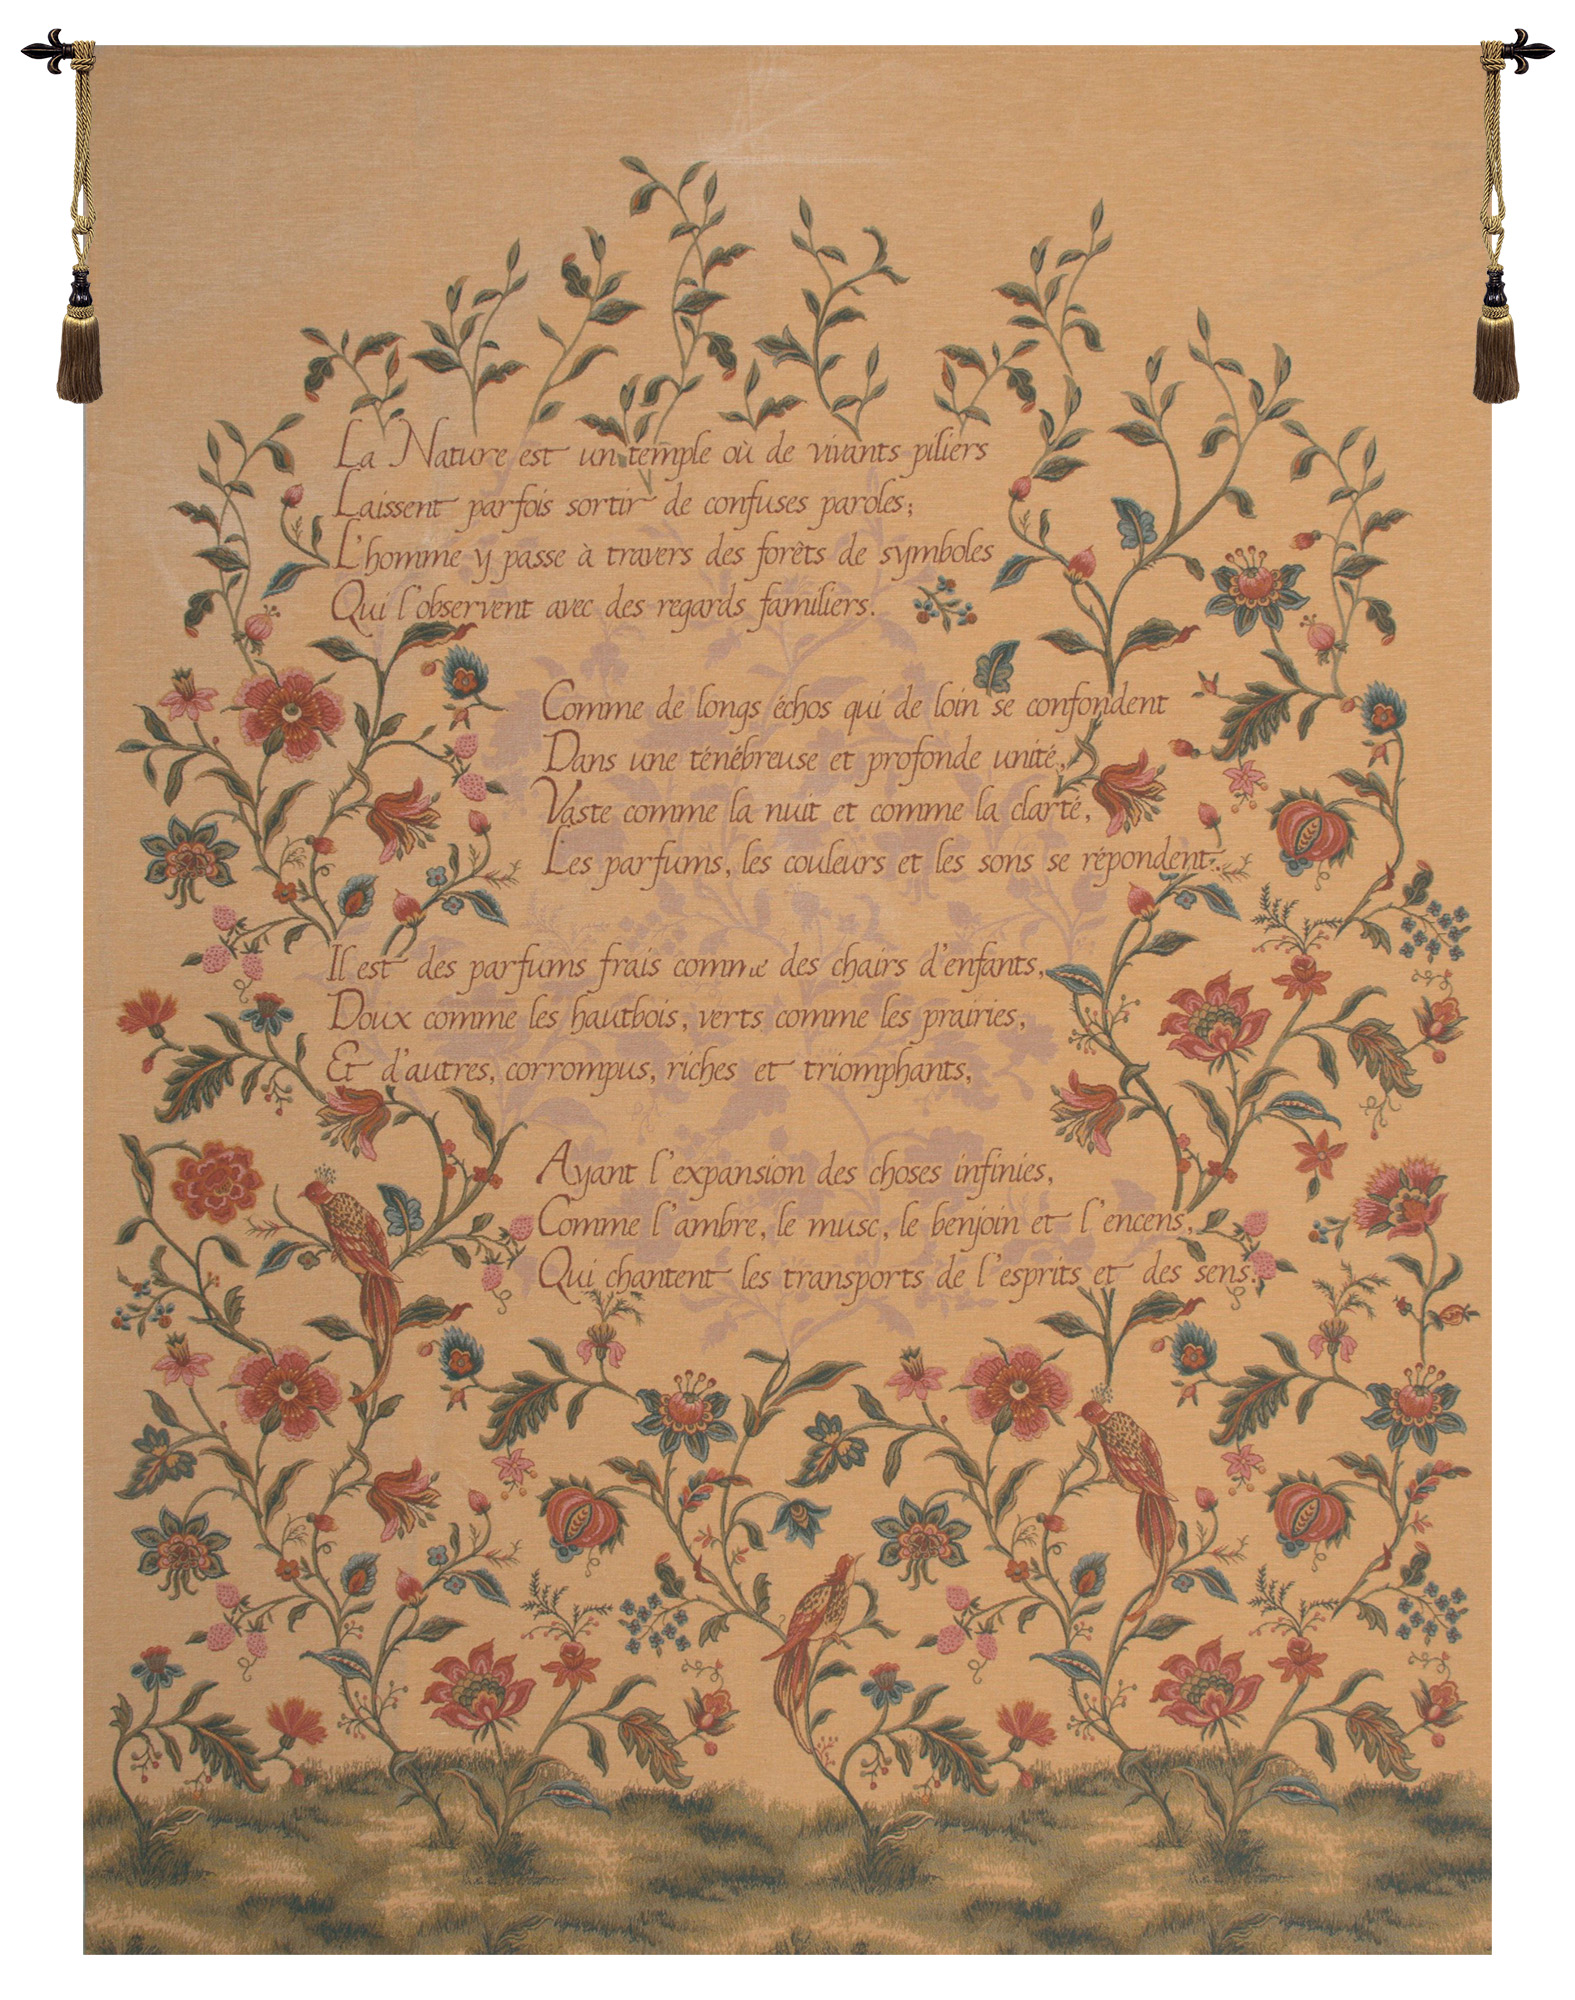 La Nature est un temple où de vivants piliers
Laissent parfois sortir de confuses paroles;
L'homme y passe à travers des forêts de symboles
Qui l'observent avec des regards familiers.
Comme de longs échos qui de loin se confondent
Dans une ténébreuse et profonde unité,
Vaste comme la nuit et comme la clarté,
Les parfums, les couleurs et les sons se répondent.
Il est des parfums frais comme des chairs d'enfants,
Doux comme les hautbois, verts comme les prairies,
Et d'autres, corrompus, riches et triomphants,
Ayant l'expansion des choses infinies,
Comme l'ambre, le musc, le benjoin et l'encens,
Qui chantent les transports de l'esprits et des sens.